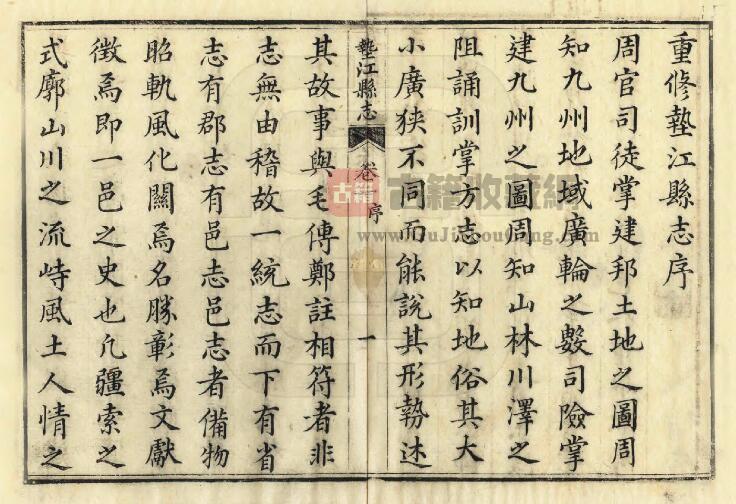 重修墊江縣志序
周官司徒掌建邦土地之圖周
知九州地域廣輪之數司險掌
建九州之圖周知山林川澤之
阻誦訓掌方志以知地俗其大
小廣狹不同而能說其形勢述
墊江縣志
卷
序
一
其故事與毛傳鄭註相符者非
志無由稽故一統志而下有省
志有郡志有邑志邑志者備物
昭軌風化關焉名勝彰焉文獻
徵焉即一邑之史也凡疆索之
式廓山川之流峙風土人情之
古籍
www.GuJiShouCang.com